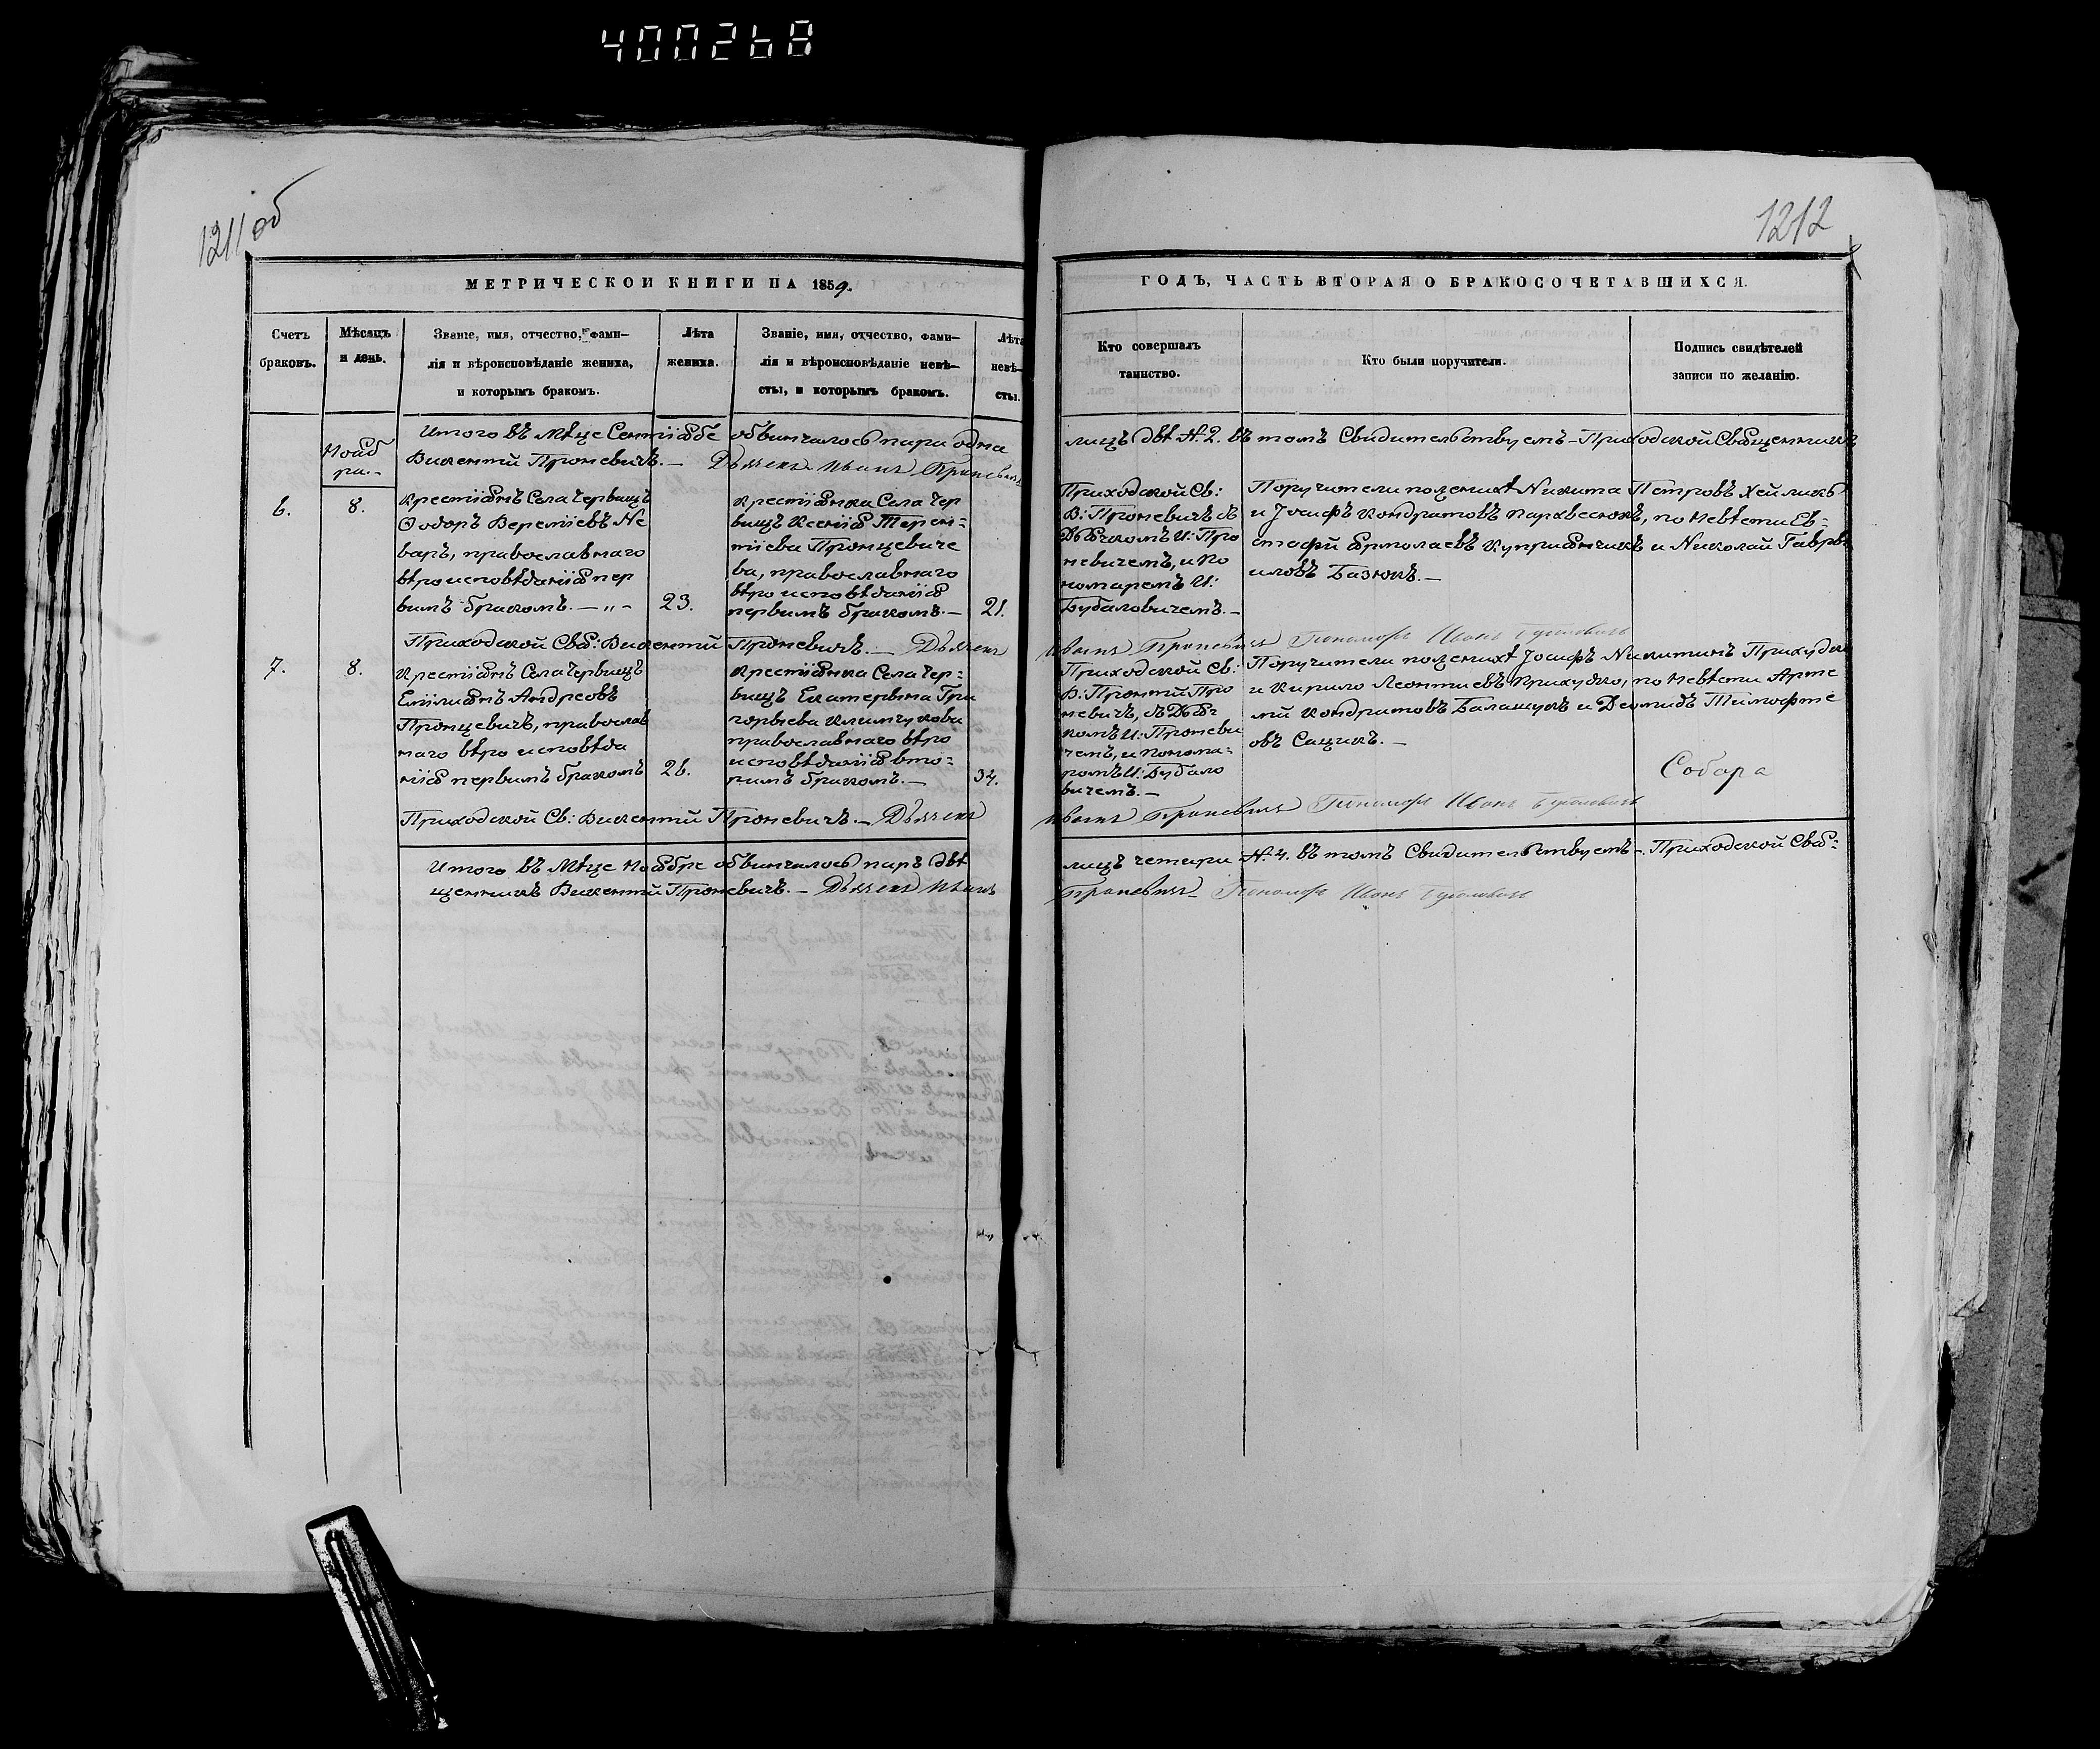 400268
1211 об
1212
МЕТРИЧЕСКОЙ КНИГИ НА 1859.
ГОДЪ, ЧАСТЬ ВТОРАЯ О БРАКОСОЧЕТАВШИХСЯ.
Счетъ
браковъ.
Мѣсяцъ
и день.
Званіе, имя, отчество, фами–
лія и вѣроисповѣданіе жениха,
и которымъ бракомъ.
Лѣта
жениха.
Званіе, имя, отчество, фами–
лія и вѣроисповѣданіе невѣ–
сты, и которымъ бракомъ.
Лѣта
невѣ–
сты.
Кто совершалъ
таинство.
Кто были поручители.
Подпись свидѣтелей
записи по желанію.
Итого въ Мѣце Сентіябе обвинчалось пари одна лицъ двѣ №. 2. въ томъ Свидительствуемъ – Приходской Священникъ
Викентій Проневичъ. – Дьячекъ Иванъ Проневичъ
Нояб
ра. –
6.
8.
Крестіянъ Села Червищъ
Ѳодоръ Вереміевъ Не
варъ, православнаго
вѣроисповѣданія пер
вимъ бракомъ. – „ –
23.
Крестіянка Села Чер
вищъ Ксенія Терен=
тіева Пронцевиче
ва, православнаго
вѣроисповѣданія
первимъ бракомъ. –
21.
Приходской Св:
В: Проневичъ съ
Дьячкомъ И: Про
невичемъ, и По
номаремъ И:
Бубаловичемъ. –
Поручители по женихѣ Никита Петровъ Хейликъ
и Іосифъ Кондратовъ Пархвенюкъ, по Невѣсти Ев=
стафій Ермолаевъ Купріянчикъ и Николай Гавры
иловъ Базюкъ. –
Приходской Свя: Викентій Проневичъ. – Дьячекъ Иванъ Проневичъ Пономарь Иванъ Бубаловичъ
7.
8.
Крестіянъ Села Червищъ
Еміліянъ Андреовъ
Пронцевичъ, православ
наго вѣроисповѣда
нія первимъ бракомъ
26.
Крестіянка Села Чер=
вищъ Екатерына Гри
горьева Климчукова
православнаго вѣро
исповѣданія вто=
римъ бракомъ. –
34.
Приходской Св:
В: Про
невичъ, съ Дьяч
комъ И: Проневи
чемъ, и Понома=
ромъ И: Бубало
вичемъ. –
Поручители по женихѣ Іосифъ Никитинъ Прихудко
и Кирило Леонтиевъ Прихудко, по Невѣсти Арте
мій Кондратовъ Балашукъ и Деомидъ Тимофте
овъ Сацикъ. –
Собора
Приходской Св: Викентій Проневичъ. – Дьячекъ Иванъ Проневичъ Пономарь Иванъ Бубаловичъ
Итого въ Мѣце Ноябре обвинчалось паръ двѣ лицъ четыри №. 4. въ томъ Свидительствуемъ – Приходской Свя=
щенникъ Викентій Проневичъ. – Дьячекъ Иванъ Проневичъ – Пономарь Иванъ Бубаловичъ